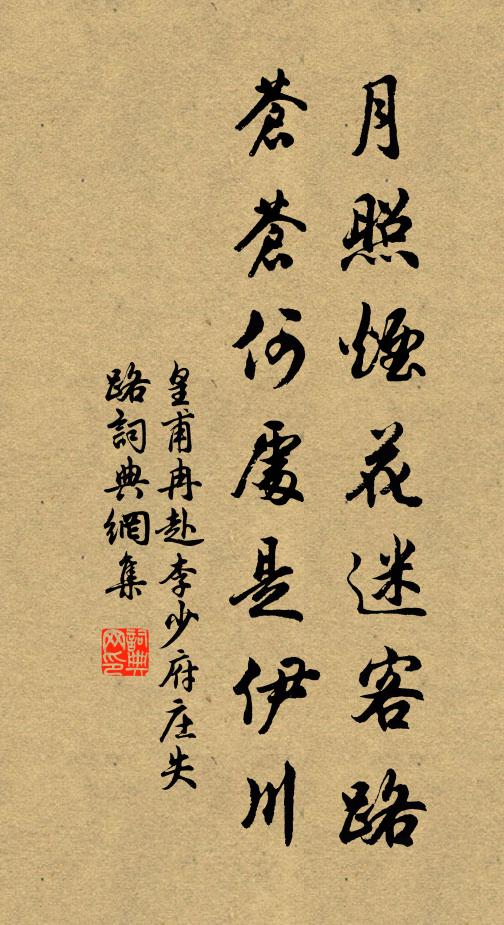 月照煙花迷客路
蒼蒼何處是伊川
皇甫冉赴李少府庄失
路詞典網集
詞典
网印